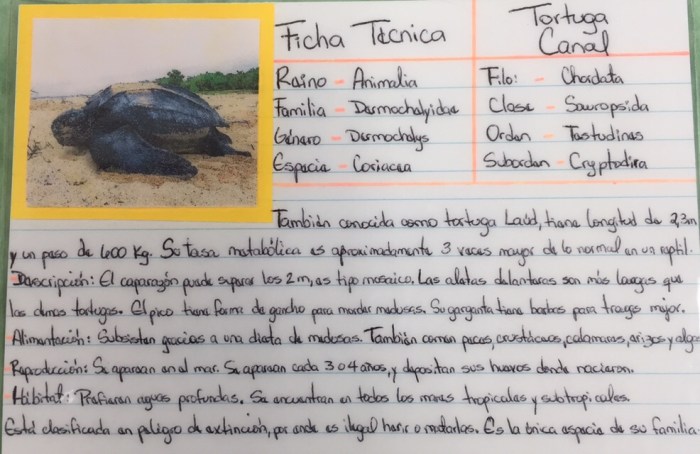 Ficha Técnica
Tortuga
Canal
Reino - Animalia
Filo: - Chordata
Familia - Dermochelyidae
Clase - Sauropsida
Género - Dermochelys
Orden - Testudines
Especie - Coriacea
Suborden - Cryptodira
También conocida como tortuga Laúd, tiene longitud de 2,3m
y un peso de 600 Kg. Su tasa metabólica es aproximadamente 3 veces mayor de lo normal en un reptil.
Descripción: El caparazón puede superar los 2m, es tipo mosaico. Las aletas delanteras son más largas que
las demas tortugas. El pico tiene forma de gancho para morder medusas. Su garganta tiene barbas para tragar mejor.
Alimentación: Subsisten gracias a una dieta de medusas. También comen peces, crustáceos, calamares, erizos y algas
Reproducción: Se aparean en el mar. Se aparean cada 3 o 4 años, y depositan sus huevos donde nacieron.
Hábitat: Prefieren aguas profundas. Se encuentran en todos los mares tropicales y subtropicales.
Está clasificada en peligro de extinción, por ende es ilegal herir o molestarlas. Es la única especie de su familia.